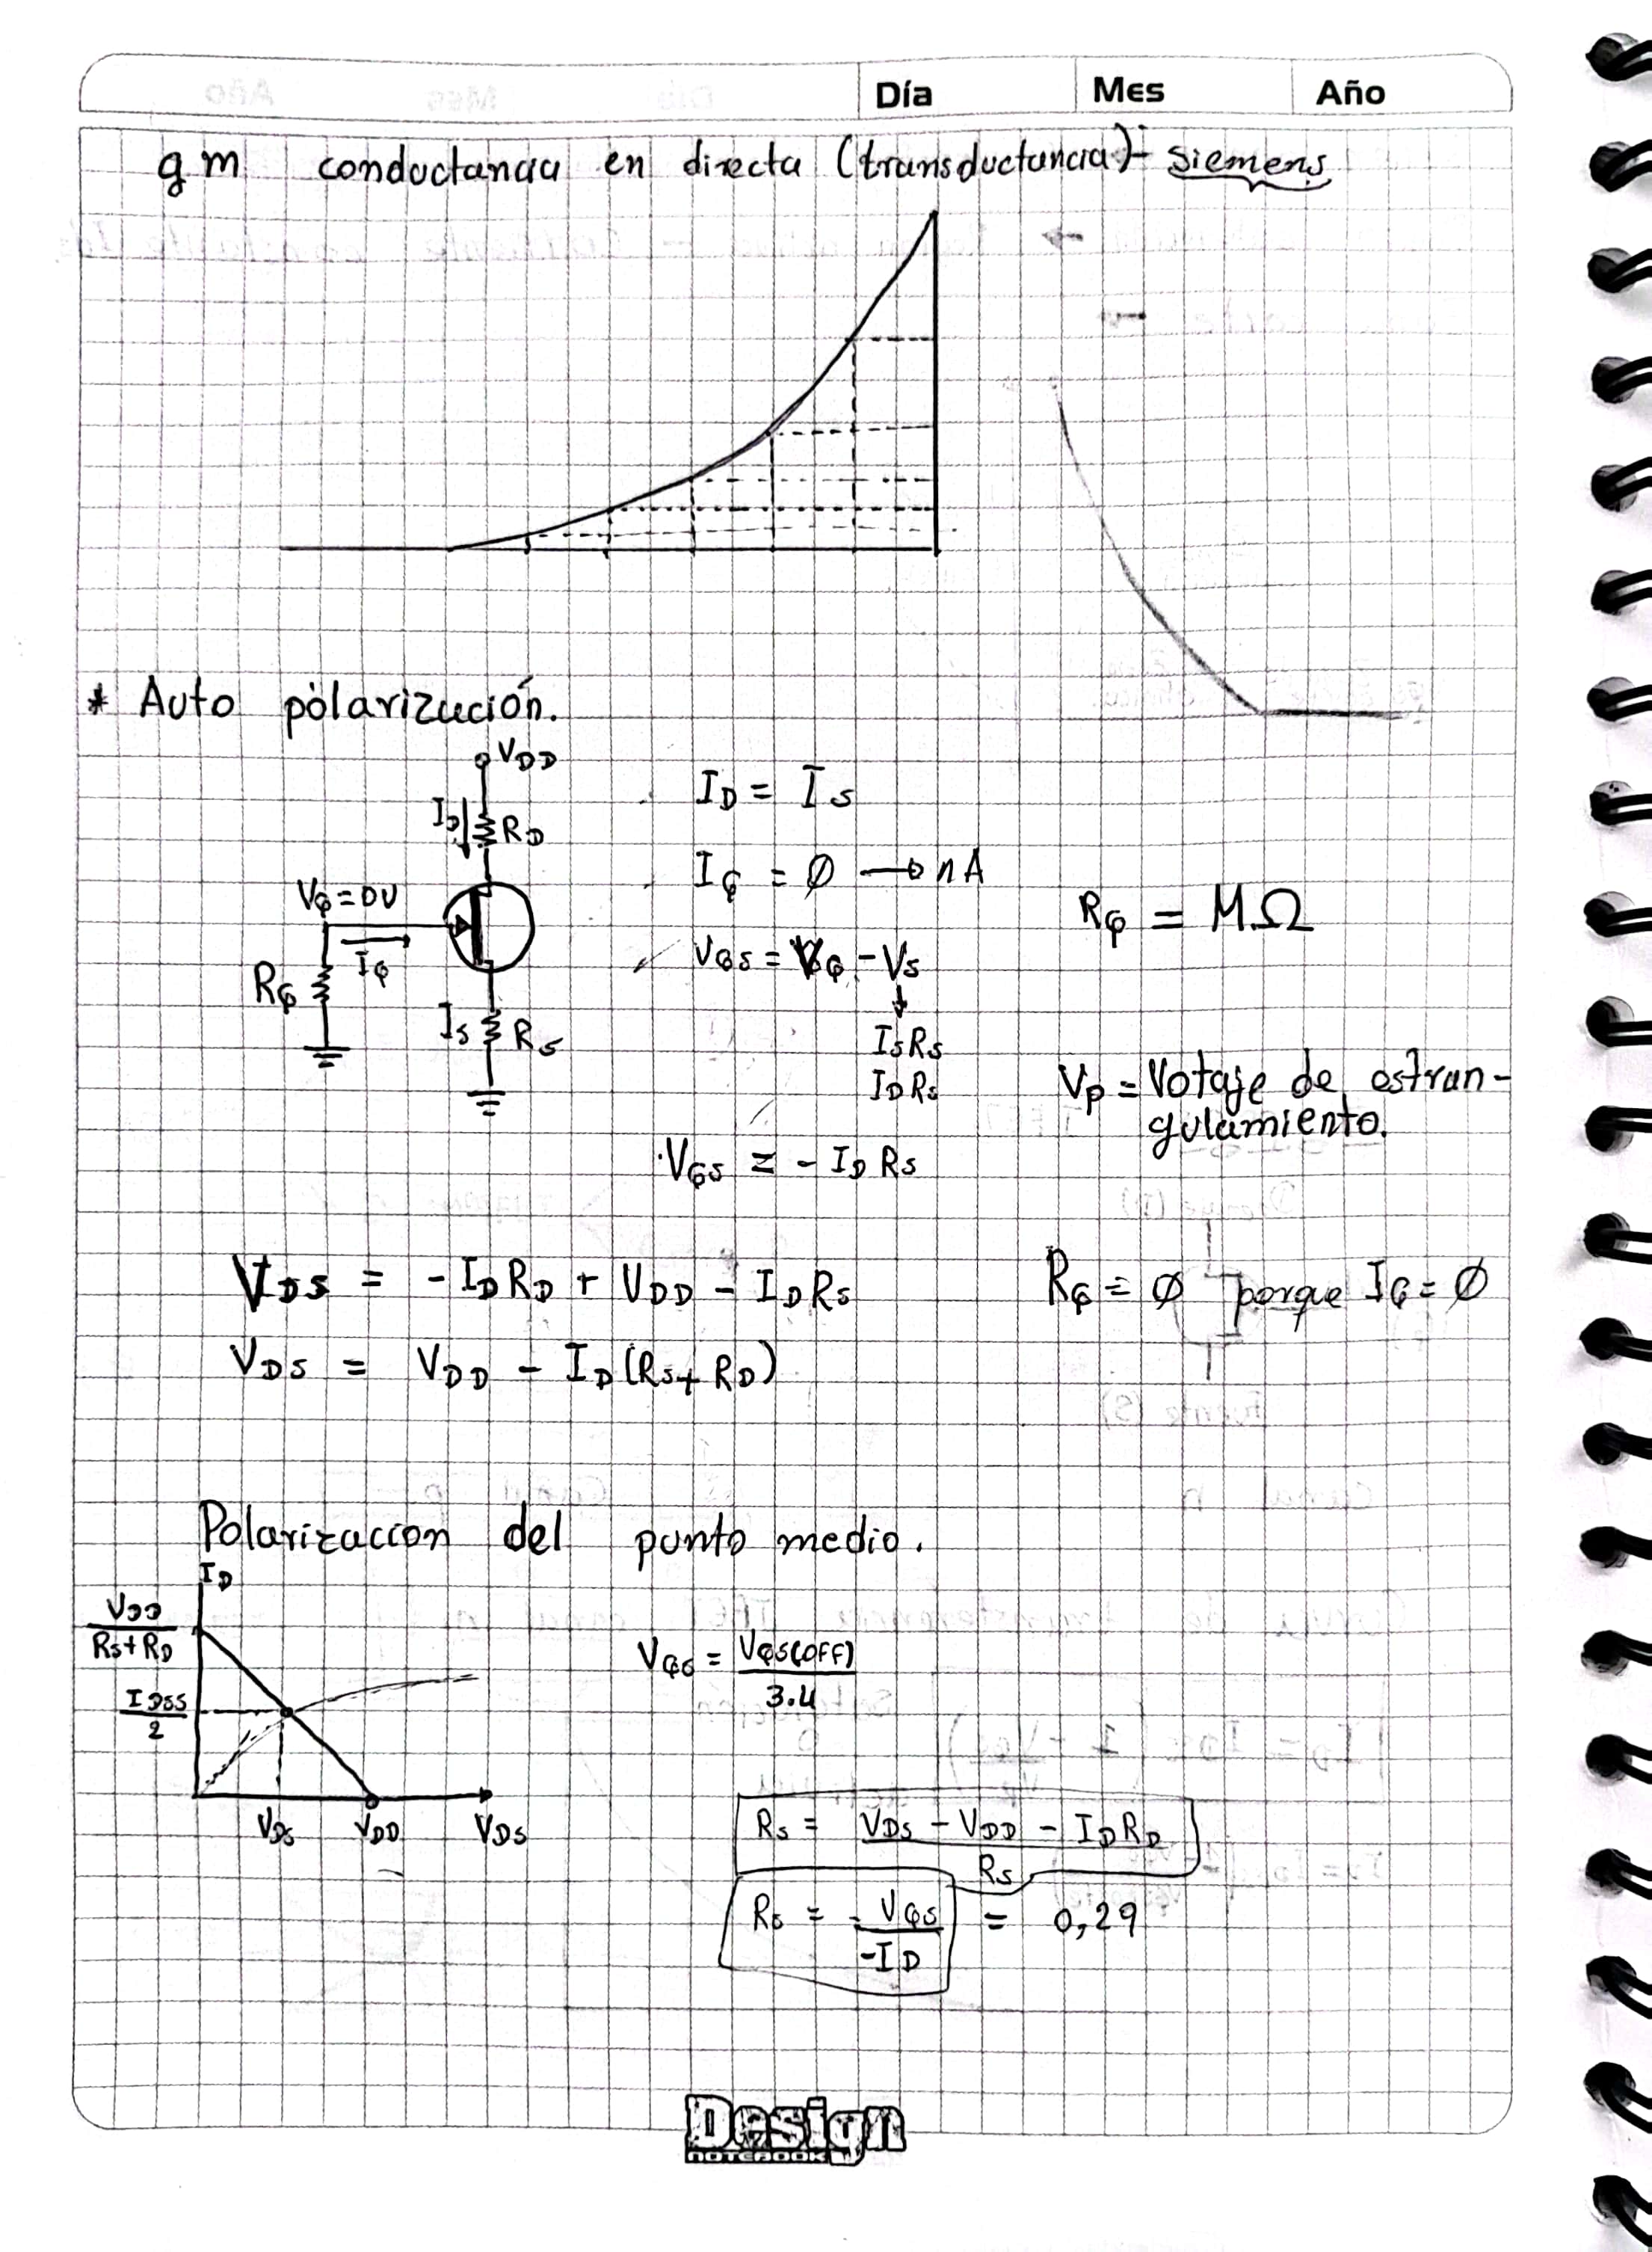 Día Mes Año
gm conductancia en directa (transductancia) - siemens
* Auto polarización.
VDD
ID RD
VG=0V
IG
RG
IS RS
ID = IS
IG = Ø → nA
VGS = VG - VS
ISRS
IDRS
VGS = - ID RS
RG = MΩ
Vp = Votaje de estran-
gulamiento.
VDS = -IDRD + VDD - IDRS
RG = Ø porque IG = Ø
VDS = VDD - ID(RS+RD)
Polarizaccion del punto medio.
ID
VDD
RS+RD
IDSS
2
VDS VDD VDS
VGS = VGS(OFF)
3.4
RS = VDS - VDD - IDRD
RS
RS = - VGS = 0,29
-ID
Design
NOTEBOOK